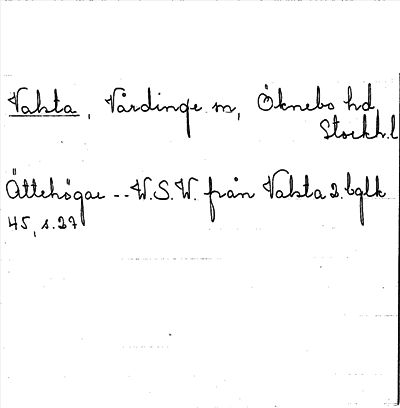 Vaksta, Vårdinge sn, Öknebo hd,
Stockh. l
Ättehögar -- V.S.V. från Vaksta 2. bglk
45, s. 27